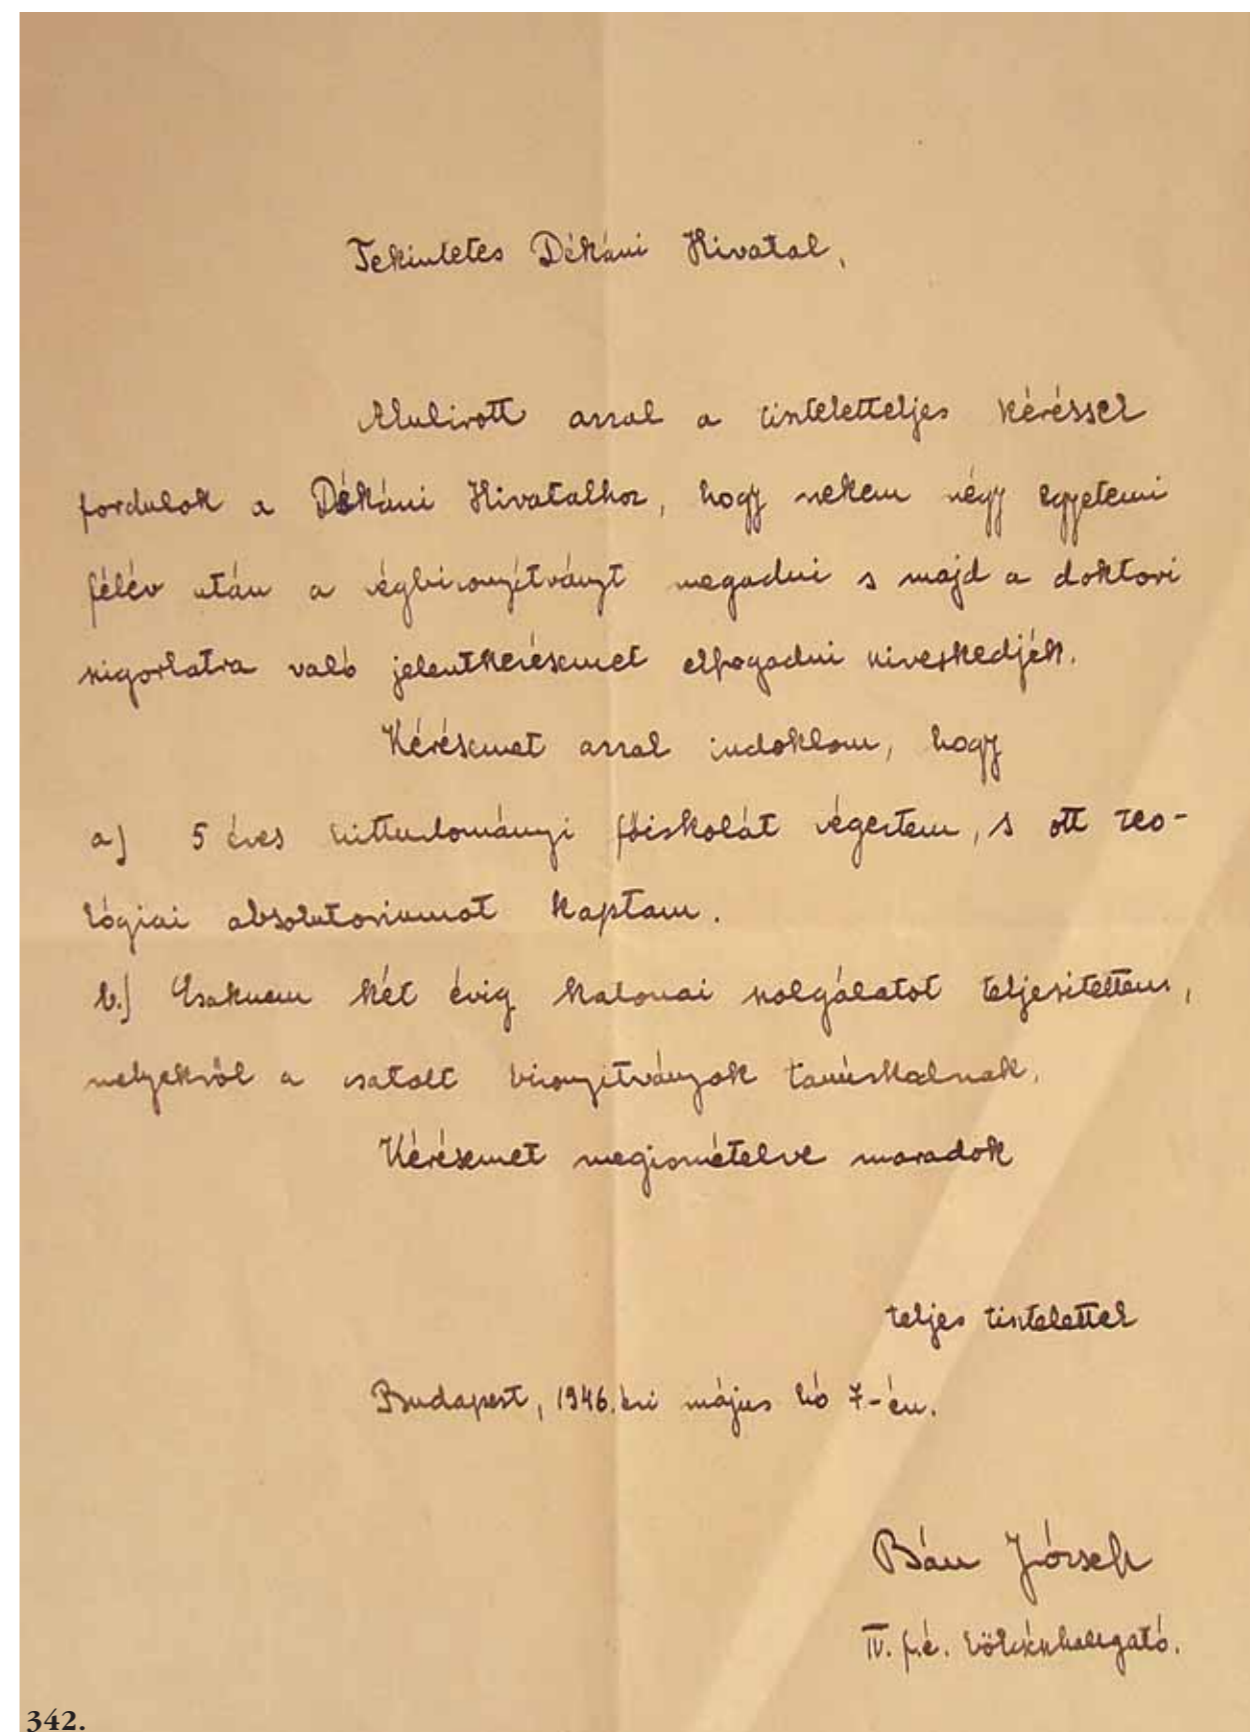 Tekintetes Dékáni Hivatal,
Alulirott azzal a tiszteletteljes kéréssel
fordulok a Dékáni Hivatalhoz, hogy nekem négy egyetemi
félév után a végbizonyítványt megadni s majd a doktori
szigorlatra való jelentkezésemet elfogadni sziveskedjék.
Kérésemet azzal indoklom, hogy
a) 5 éves hittudományi főiskolát végeztem, s ott teo-
lógiai absolutoriumot kaptam.
b.) Csaknem két évig katonai szolgálatot teljesitettem,
melyekről a csatolt bizonyitványok tanúskodnak.
Kérésemet megismételve maradok
teljes tisztelettel
Budapest, 1946. évi május hó 7-én.
Bán József
IV. f.é. bölcsészhallgató.
342.